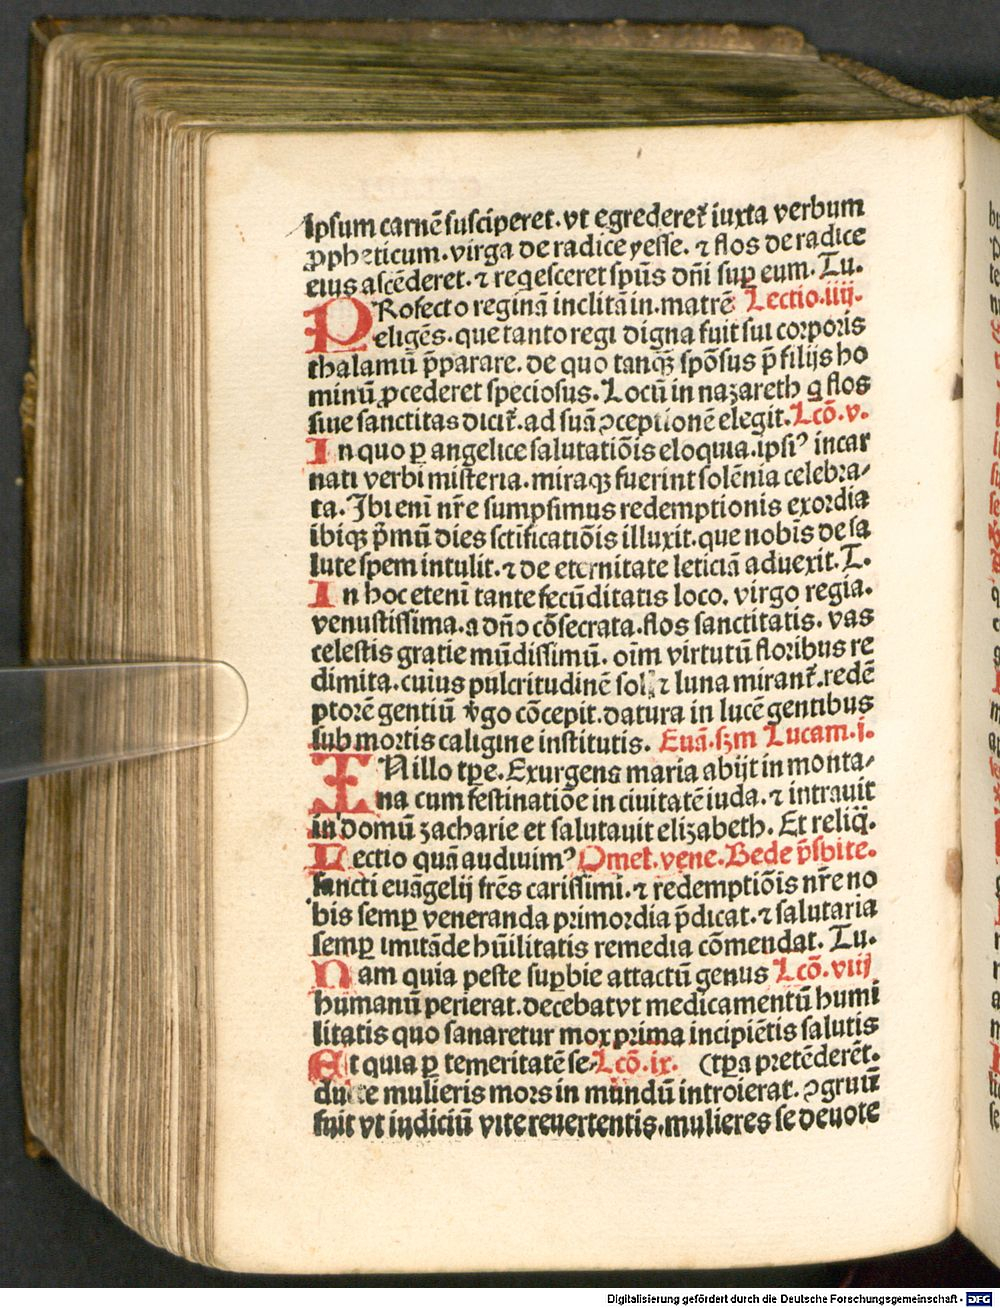 Ipsum carnē susciperet. vt egrederet᷑ iuxta verbum
ꝓpheticum. virga de radice yesse. ⁊ flos de radice
eius ascēderet. ⁊ reqesceret spūs dn̄i suꝑ eum. Tu.
PRofecto reginā inclitā in. matrē Lectio .iiij.
eligēs. que tanto regi digna fuit sui corporis
thalamū p̄parare. de quo tanqꝫ spōsus p̄ filijs ho
minū ꝓcederet speciosus. Locū in nazareth q flos
siue sanctitas dicit᷑. ad suā ꝯceptionē elegit. Lcō. v.
In quo ꝑ angelice salutatiōis eloquia. ipsiꝰ incar
nati verbi misteria. miraqꝫ fuerint solēnia celebra-
ta. Ibi eni nr̄e sumpsimus redemptionis exordia
ibiqꝫ p̄mū dies sctificatiōis illuxit. que nobis de sa
lute spem intulit. ⁊ de eternitate leticiā aduexit. T.
In hoc eteni tante fecūditatis loco. virgo regia.
venustissima. a dn̄o cōsecrata. flos sanctitatis. vas
celestis gratie mūdissimū. oīm virtutū floribus re
dimita. cuius pulcritudinē sol ⁊ luna mirant᷑. redē
ptorē gentiū v̄go cōcepit. datura in lucē gentibus
sub mortis caligine institutis. Euā. scꝫm Lucam. i.
IN illo tꝑe. Exurgens maria abijt in monta-
na cum festinatiōe in ciuitatē iuda. ⁊ intrauit
in domū zacharie et salutauit elizabeth. Et reliq̄.
Lectio quā audiuimꝰ Omel. vene. Bede p̄sbite.
sancti euāgelij frēs carissimi. ⁊ redemptiōis nr̄e no
bis semꝑ veneranda primordia p̄dicat. ⁊ salutaria
semꝑ imitāde hūilitatis remedia cōmendat. Tu.
Nam quia peste suꝑbie attactū genus Lcō. viij
humanū perierat. decebat vt medicamentū humi
litatis quo sanaretur mox prima incipiētis salutis
Et quia ꝑ temeritatē se- Lcō. ix. (tꝑa pretēderēt.
ducte mulieris mors in mundū introierat. ꝯgruū
fuit vt iudiciū vite reuertentis. mulieres se deuote
Digitalisierung gefördert durch die Deutsche Forschungsgemeinschaft - DFG